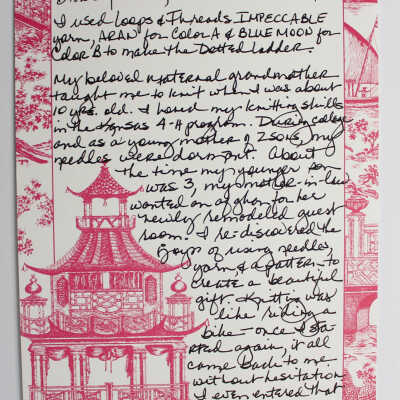 I used Loops & Threads IMPECCABLE
yarn, ARAN for Color A & BLUE MOON for
Color B to make the Dotted Ladder.
My beloved maternal grandmother
taught me to knit when I was about
10 yrs. old. I honed my knitting skills
in the Kansas 4-H program. During college
and as a young mother of 2 sons, my
needles were dormant. About
the time my younger son
was 3, my mother-in-law
wanted an afghan for her
newly remodeled guest
room. I re-discovered the
joys of using needles,
yarn, & a pattern to
create a beautiful
gift. Knitting was
like riding a
bike - once I sta-
rted again, it all
came back to me
without hesitation
I even entered that